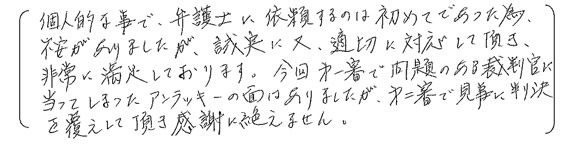 個人的な事で、弁護士に依頼するのは初めてであった為、
不安がありましたが、誠実に又、適切に対応して頂き、
非常に満足しております。今回才一審で問題のある裁判官に
当ってしまったアンラッキーの面はありましたが、才二審で見事に判決
を覆えして頂き感謝に絶えません。